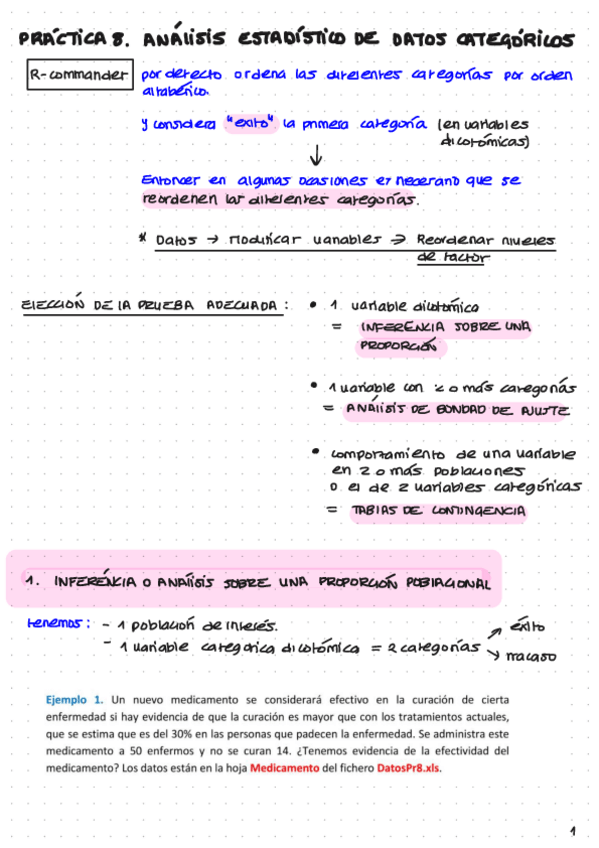 PRÁCTICA 8. ANÁLISIS ESTADÍSTICO DE DATOS CATEGÓRICOS
R-commander por defecto ordena las diferentes categorías por orden
alfabérico.
y considera "exito" la primera categoría (en variables
dicotómicas)
↓
Entonces en algunas ocasiones es necesario que se
reordenen las diferentes categorías.
* Datos → Modificar variables → Reordenar niveles
de factor
ELECCIÓN DE LA PRUEBA ADECUADA : • 1 variable dicotómica
= INFERENCIA SOBRE UNA
PROPORCIÓN
• 1 variable con 2 o más categorías
= ANÁLISIS DE BONDAD DE AJUSTE
• comportamiento de una variable
en 2 o más poblaciones
o el de 2 variables categóricas
= TABLAS DE CONTINGENCIA
1. INFERENCIA O ANÁLISIS SOBRE UNA PROPORCIÓN POBLACIONAL
tenemos : - 1 población de interés.
- 1 variable categorica dicotómica = 2 categorías
éxito
fracaso
Ejemplo 1. Un nuevo medicamento se considerará efectivo en la curación de cierta
enfermedad si hay evidencia de que la curación es mayor que con los tratamientos actuales,
que se estima que es del 30% en las personas que padecen la enfermedad. Se administra este
medicamento a 50 enfermos y no se curan 14. ¿Tenemos evidencia de la efectividad del
medicamento? Los datos están en la hoja Medicamento del fichero DatosPr8.xls.
1